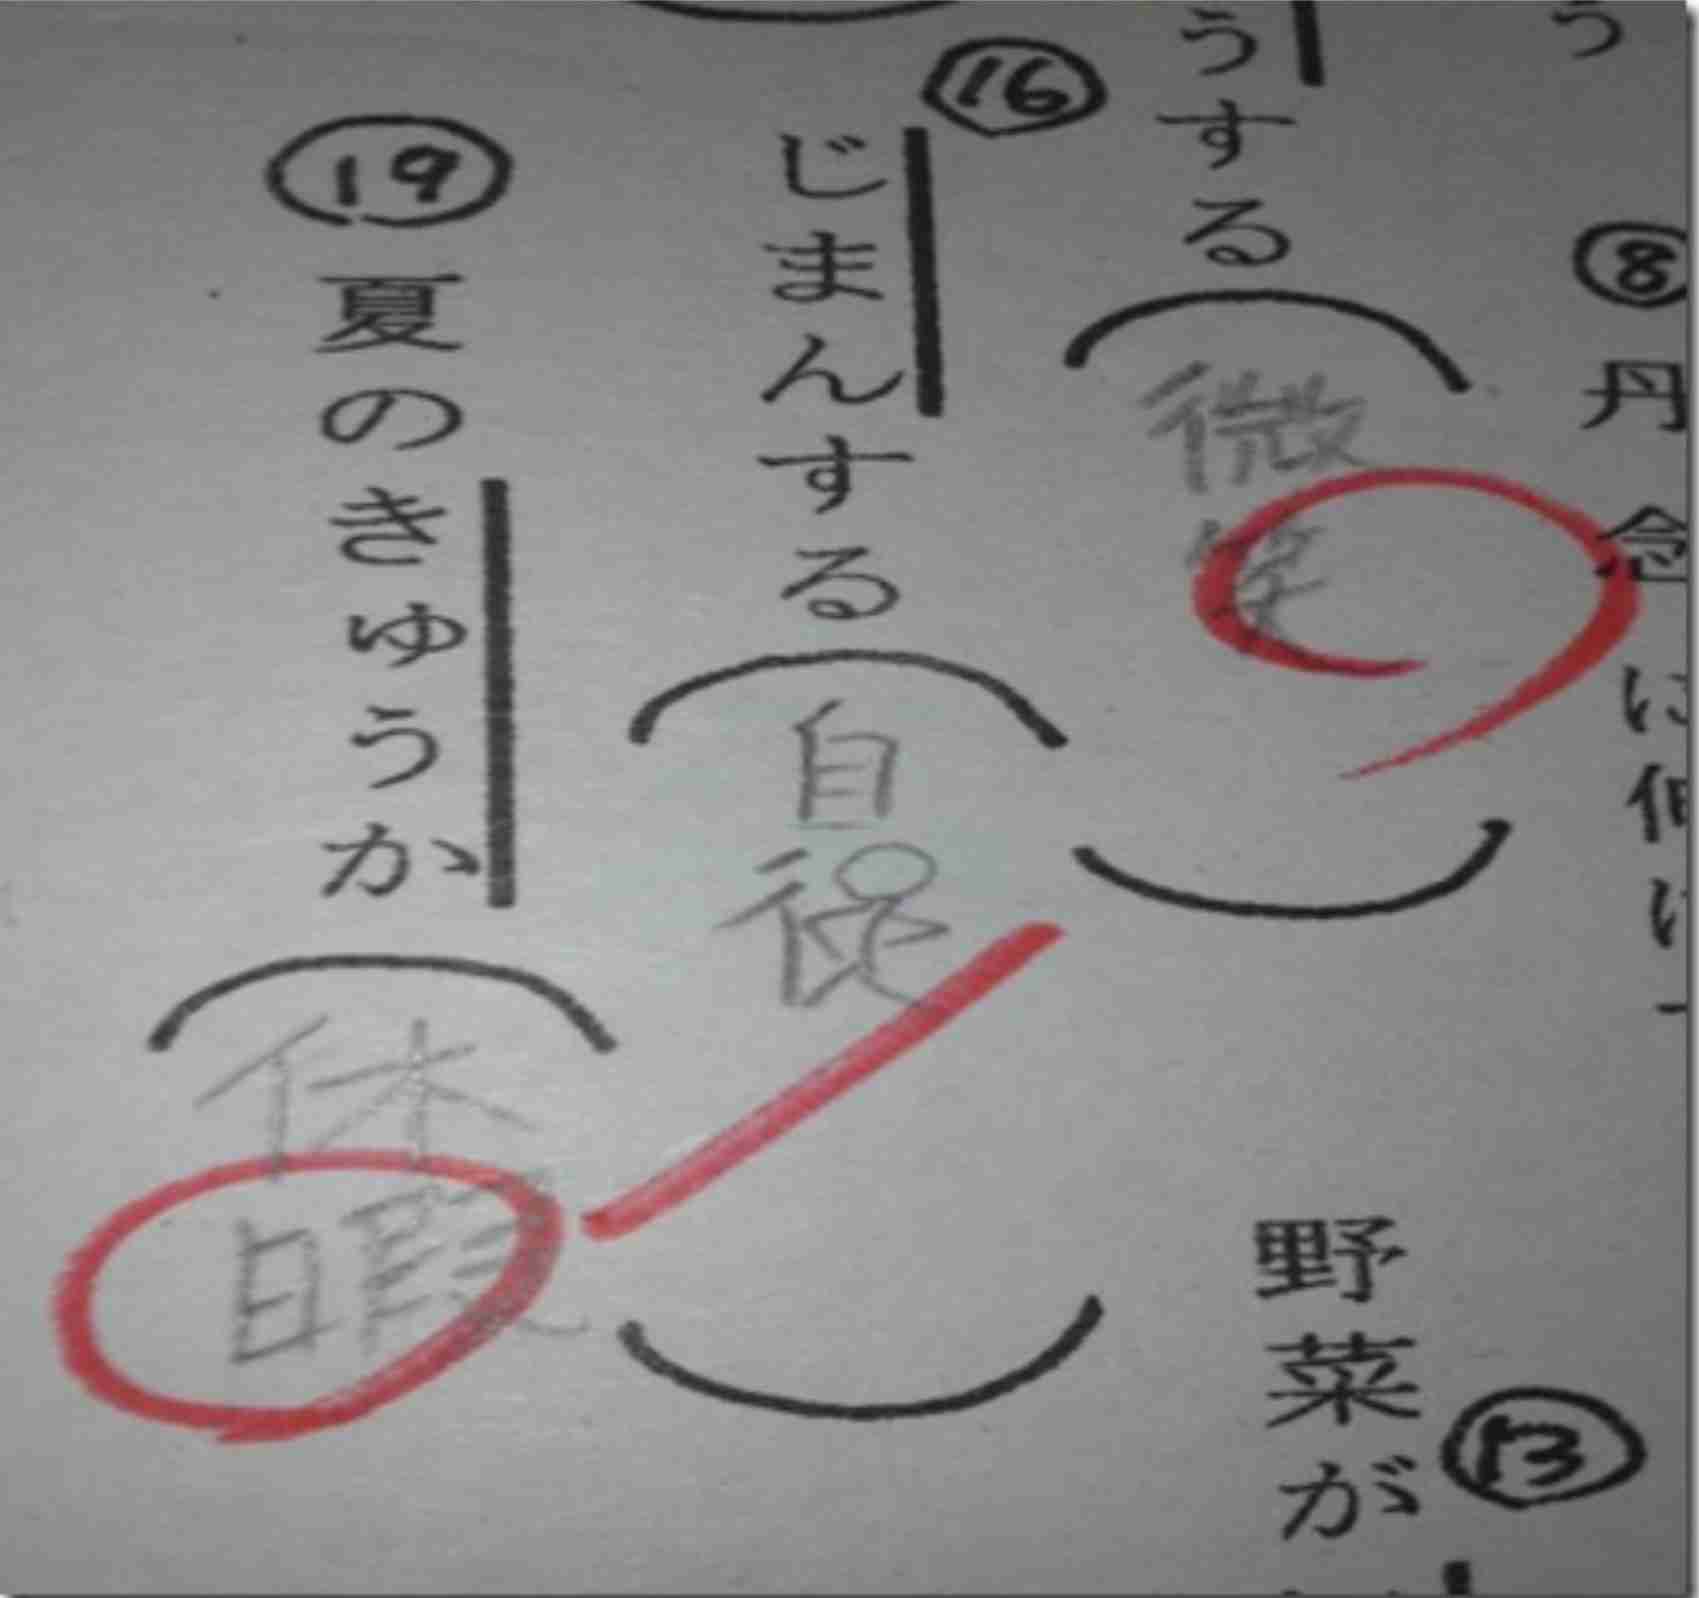 う
⑧ 丹念に
うする（微笑）
⑬ 野菜が
⑯ じまんする（自）
⑲ 夏のきゅうか（休暇